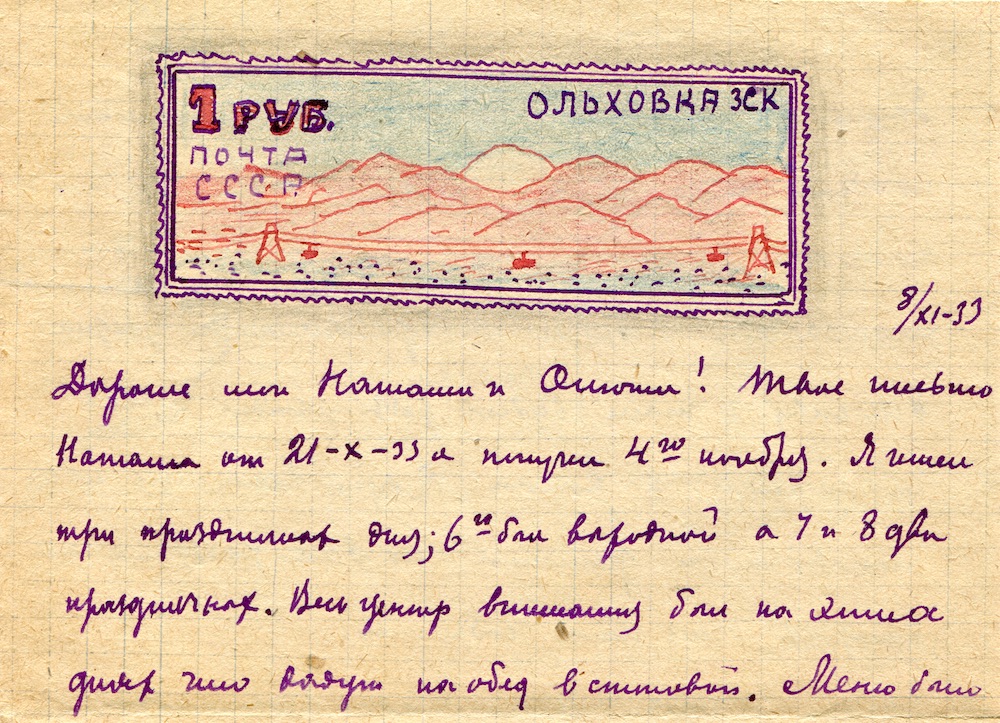 1 РУБ.
ОЛЬХОВКА ЗСК
ПОЧТА
СССР
8/XI-33
Дорогие мои Наташа и Олюша! Твое письмо
Наташа от 21-X-33 я получил 4го ноября. Я имел
три праздничных дня; 6го был выходной а 7 и 8 два
праздничных. Весь центр внимания был на этих
днях что дадут на обед в столовой. Меню было